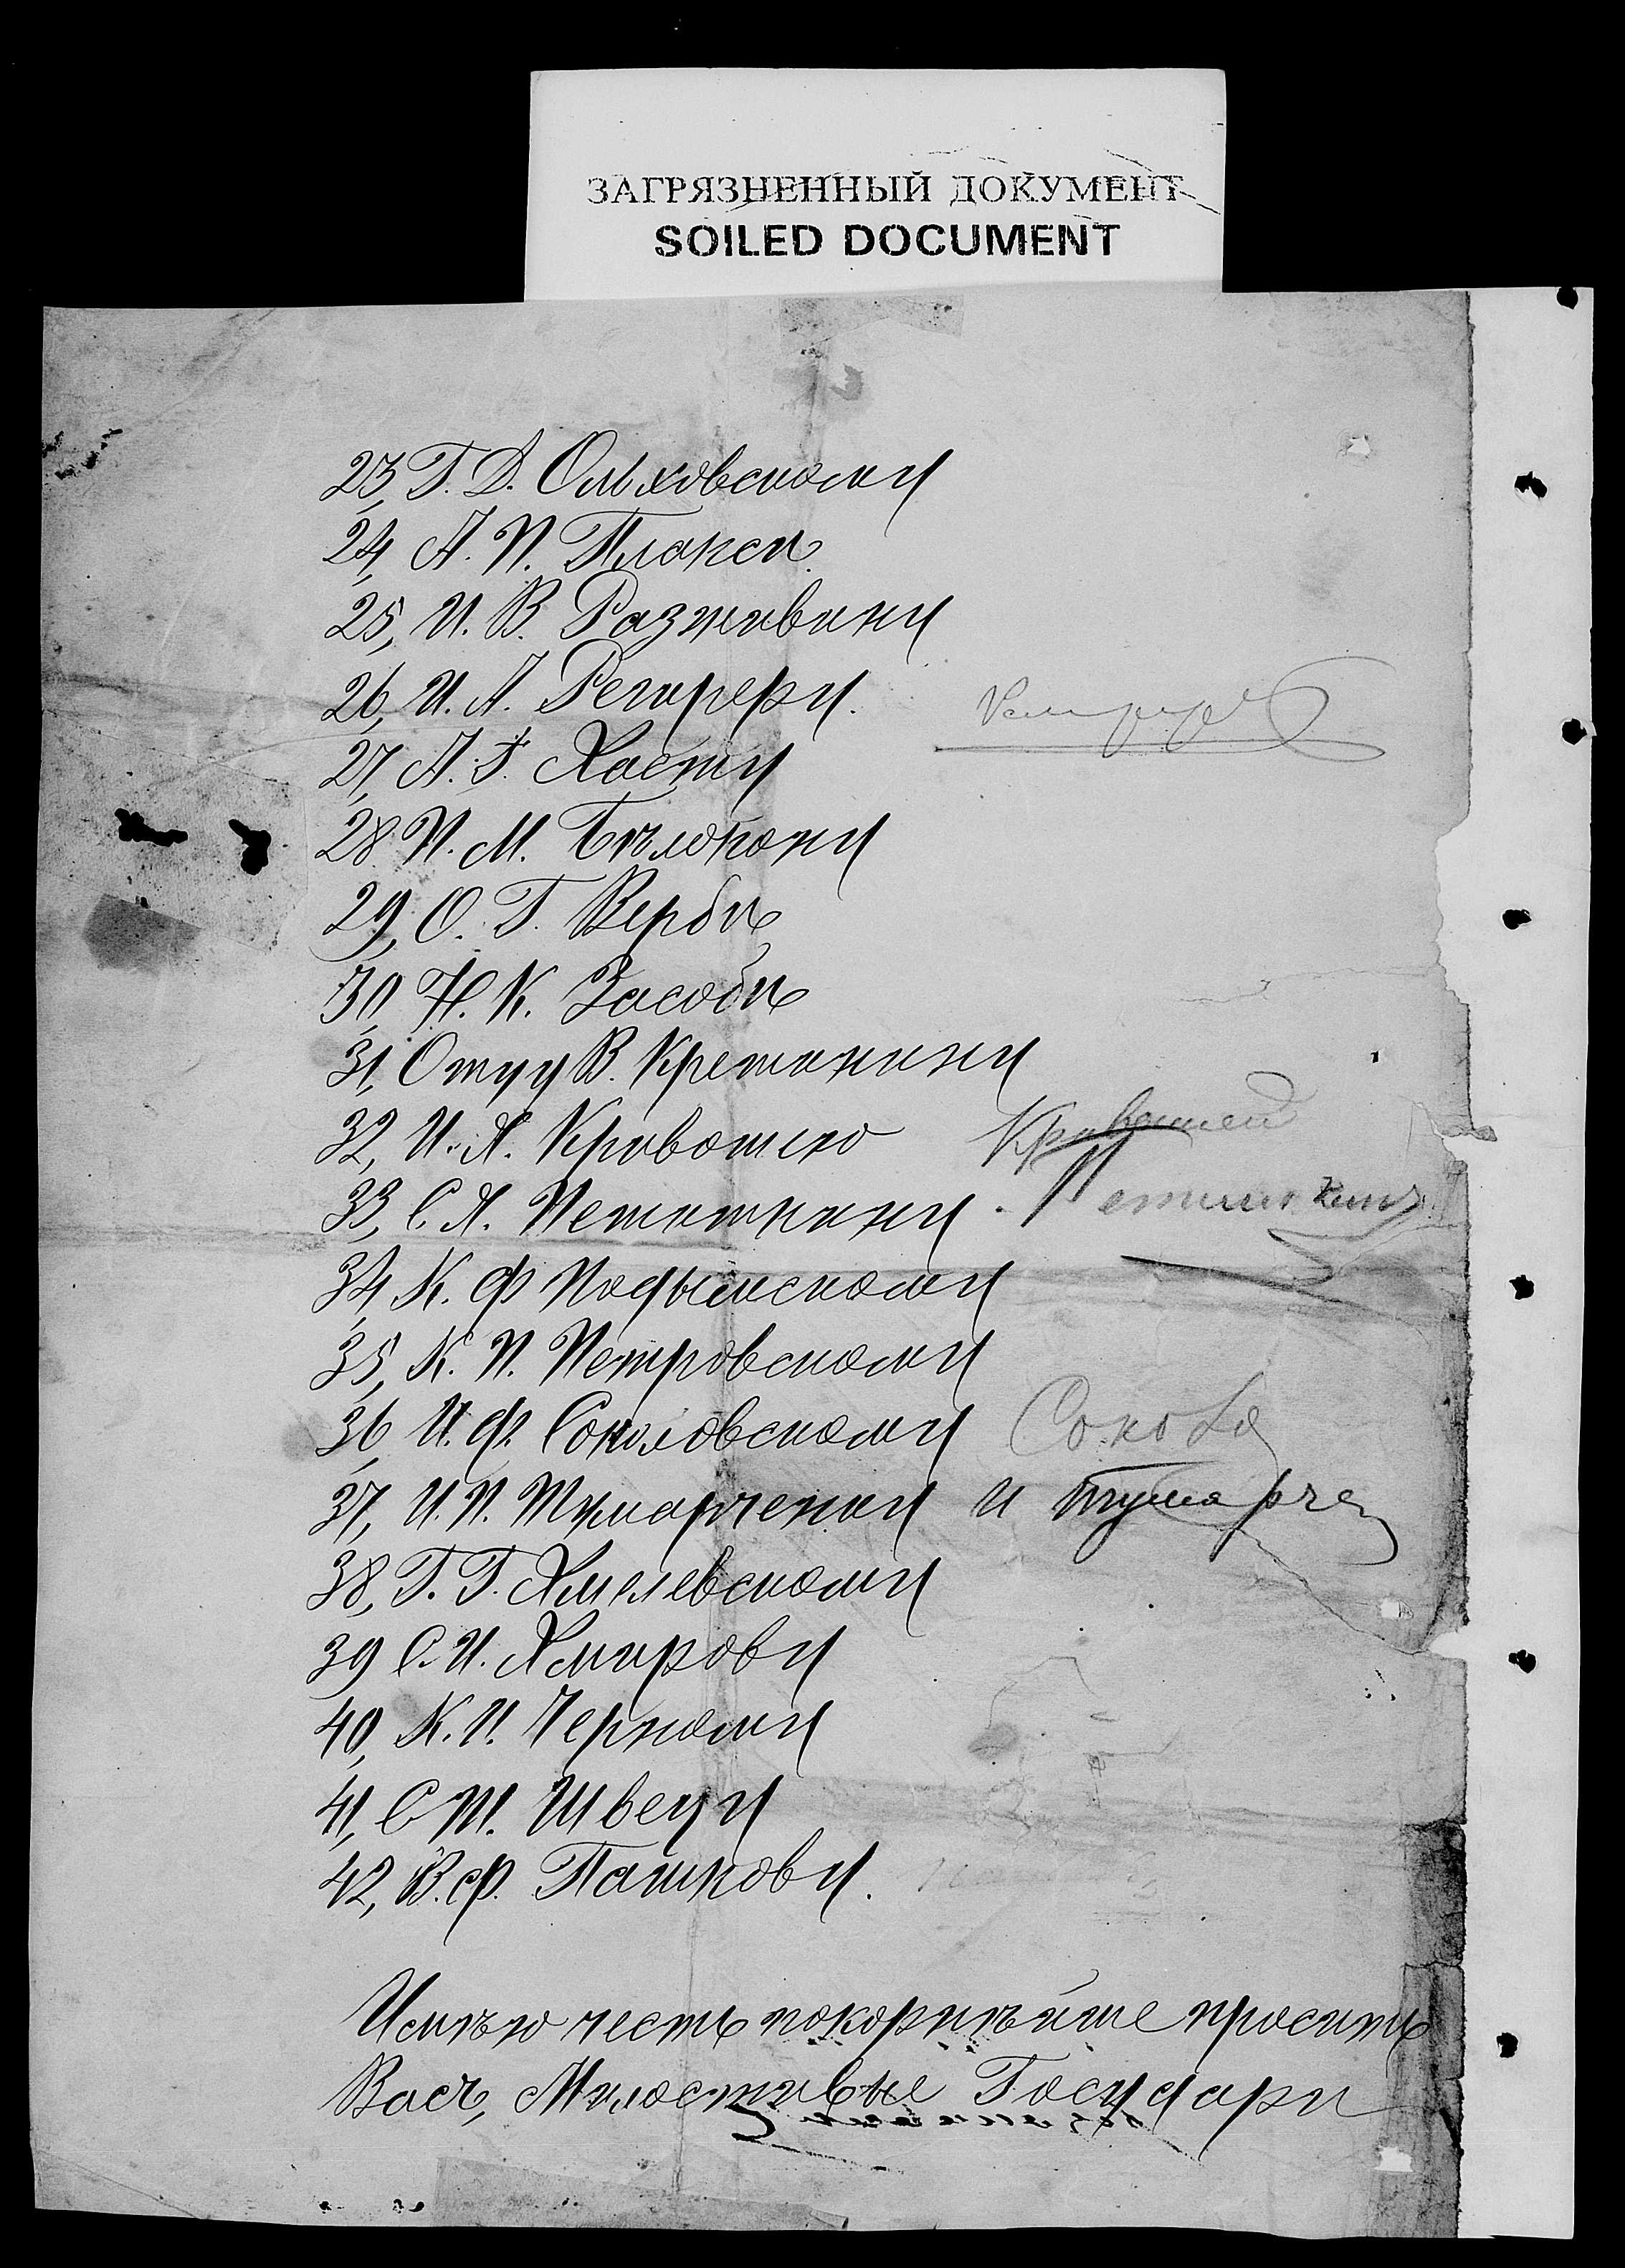 ЗАГРЯЗНЕННЫЙ ДОКУМЕНТ
SOILED DOCUMENT
23, Г. Д. Ольховскому
24, А. П. Плаксѣ
25, И. В. Разживину
26, И. А. Региреру.
27, А. Г. Хасту
28 П. М. Бѣлокону
29, О. Г. Вербѣ
30, Н. К. Засобѣ
31, Отцу В. Кретинину
32, И. А. Кривошею Кривошей
33, С. А. Петиткину
34, К. Ф. Подымскому
35, К. П. Петровскому
36, И. Ф. Соколовскому
37, И. П. Тумарченку И Тумарче
38, Г. Г. Хмелевскому
39 С. И. Хмирову
40, К. И. Черному
41, С. Т. Швецу
42, В. Ф. Пашкову.
Имѣю честь покорнѣйше просить
Васъ, Милостивые Государи